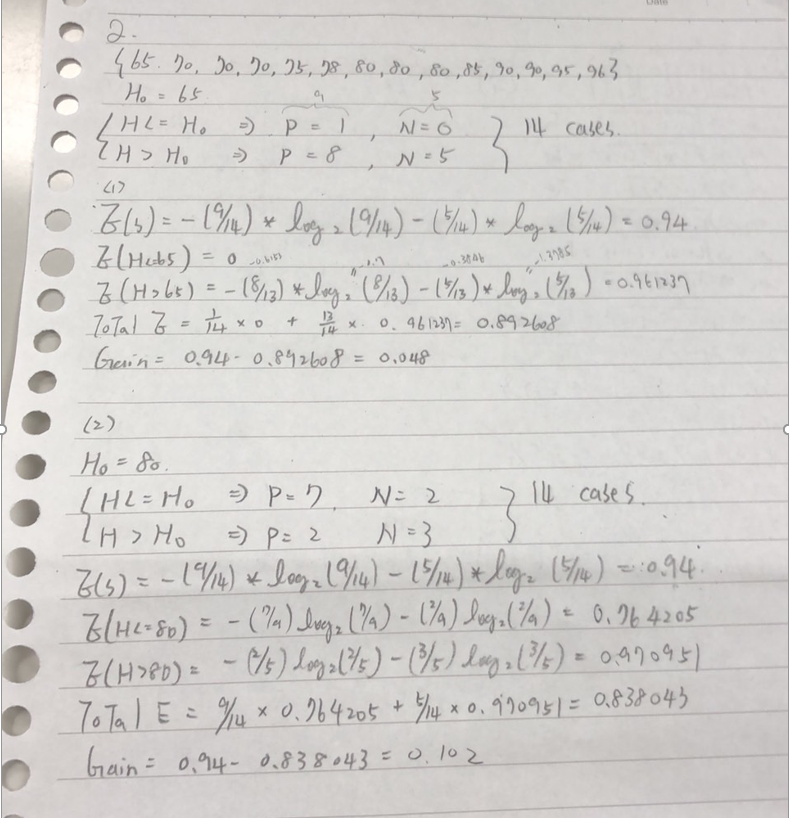 2.
{65. 70, 70, 70, 75, 78, 80, 80, 80, 85, 90, 90, 95, 96}
H₀ = 65
9 5
{ H<= H₀ => P = 1 , N = 0 } 14 cases.
{ H > H₀ => P = 8 , N = 5
(1)
E(s) = -(9/14) * log₂(9/14) - (5/14) * log₂(5/14) = 0.94
E(H<=65) = 0
E(H>65) = -(8/13) * log₂(8/13) - (5/13) * log₂(5/13) = 0.961237
ToTal E = 1/14 × 0 + 13/14 × 0.961237 = 0.892608
Gain = 0.94 - 0.892608 = 0.048
(2)
H₀ = 80.
{ H<= H₀ => P = 7, N = 2 } 14 cases.
{ H > H₀ => P = 2 N = 3
E(s) = -(9/14) * log₂(9/14) - (5/14) * log₂(5/14) = 0.94.
E(H<=80) = -(7/9) log₂(7/9) - (2/9) log₂(2/9) = 0.764205
E(H>80) = -(2/5) log₂(2/5) - (3/5) log₂(3/5) = 0.970951
ToTal E = 9/14 × 0.764205 + 5/14 × 0.970951 = 0.838043
Gain = 0.94 - 0.838043 = 0.102